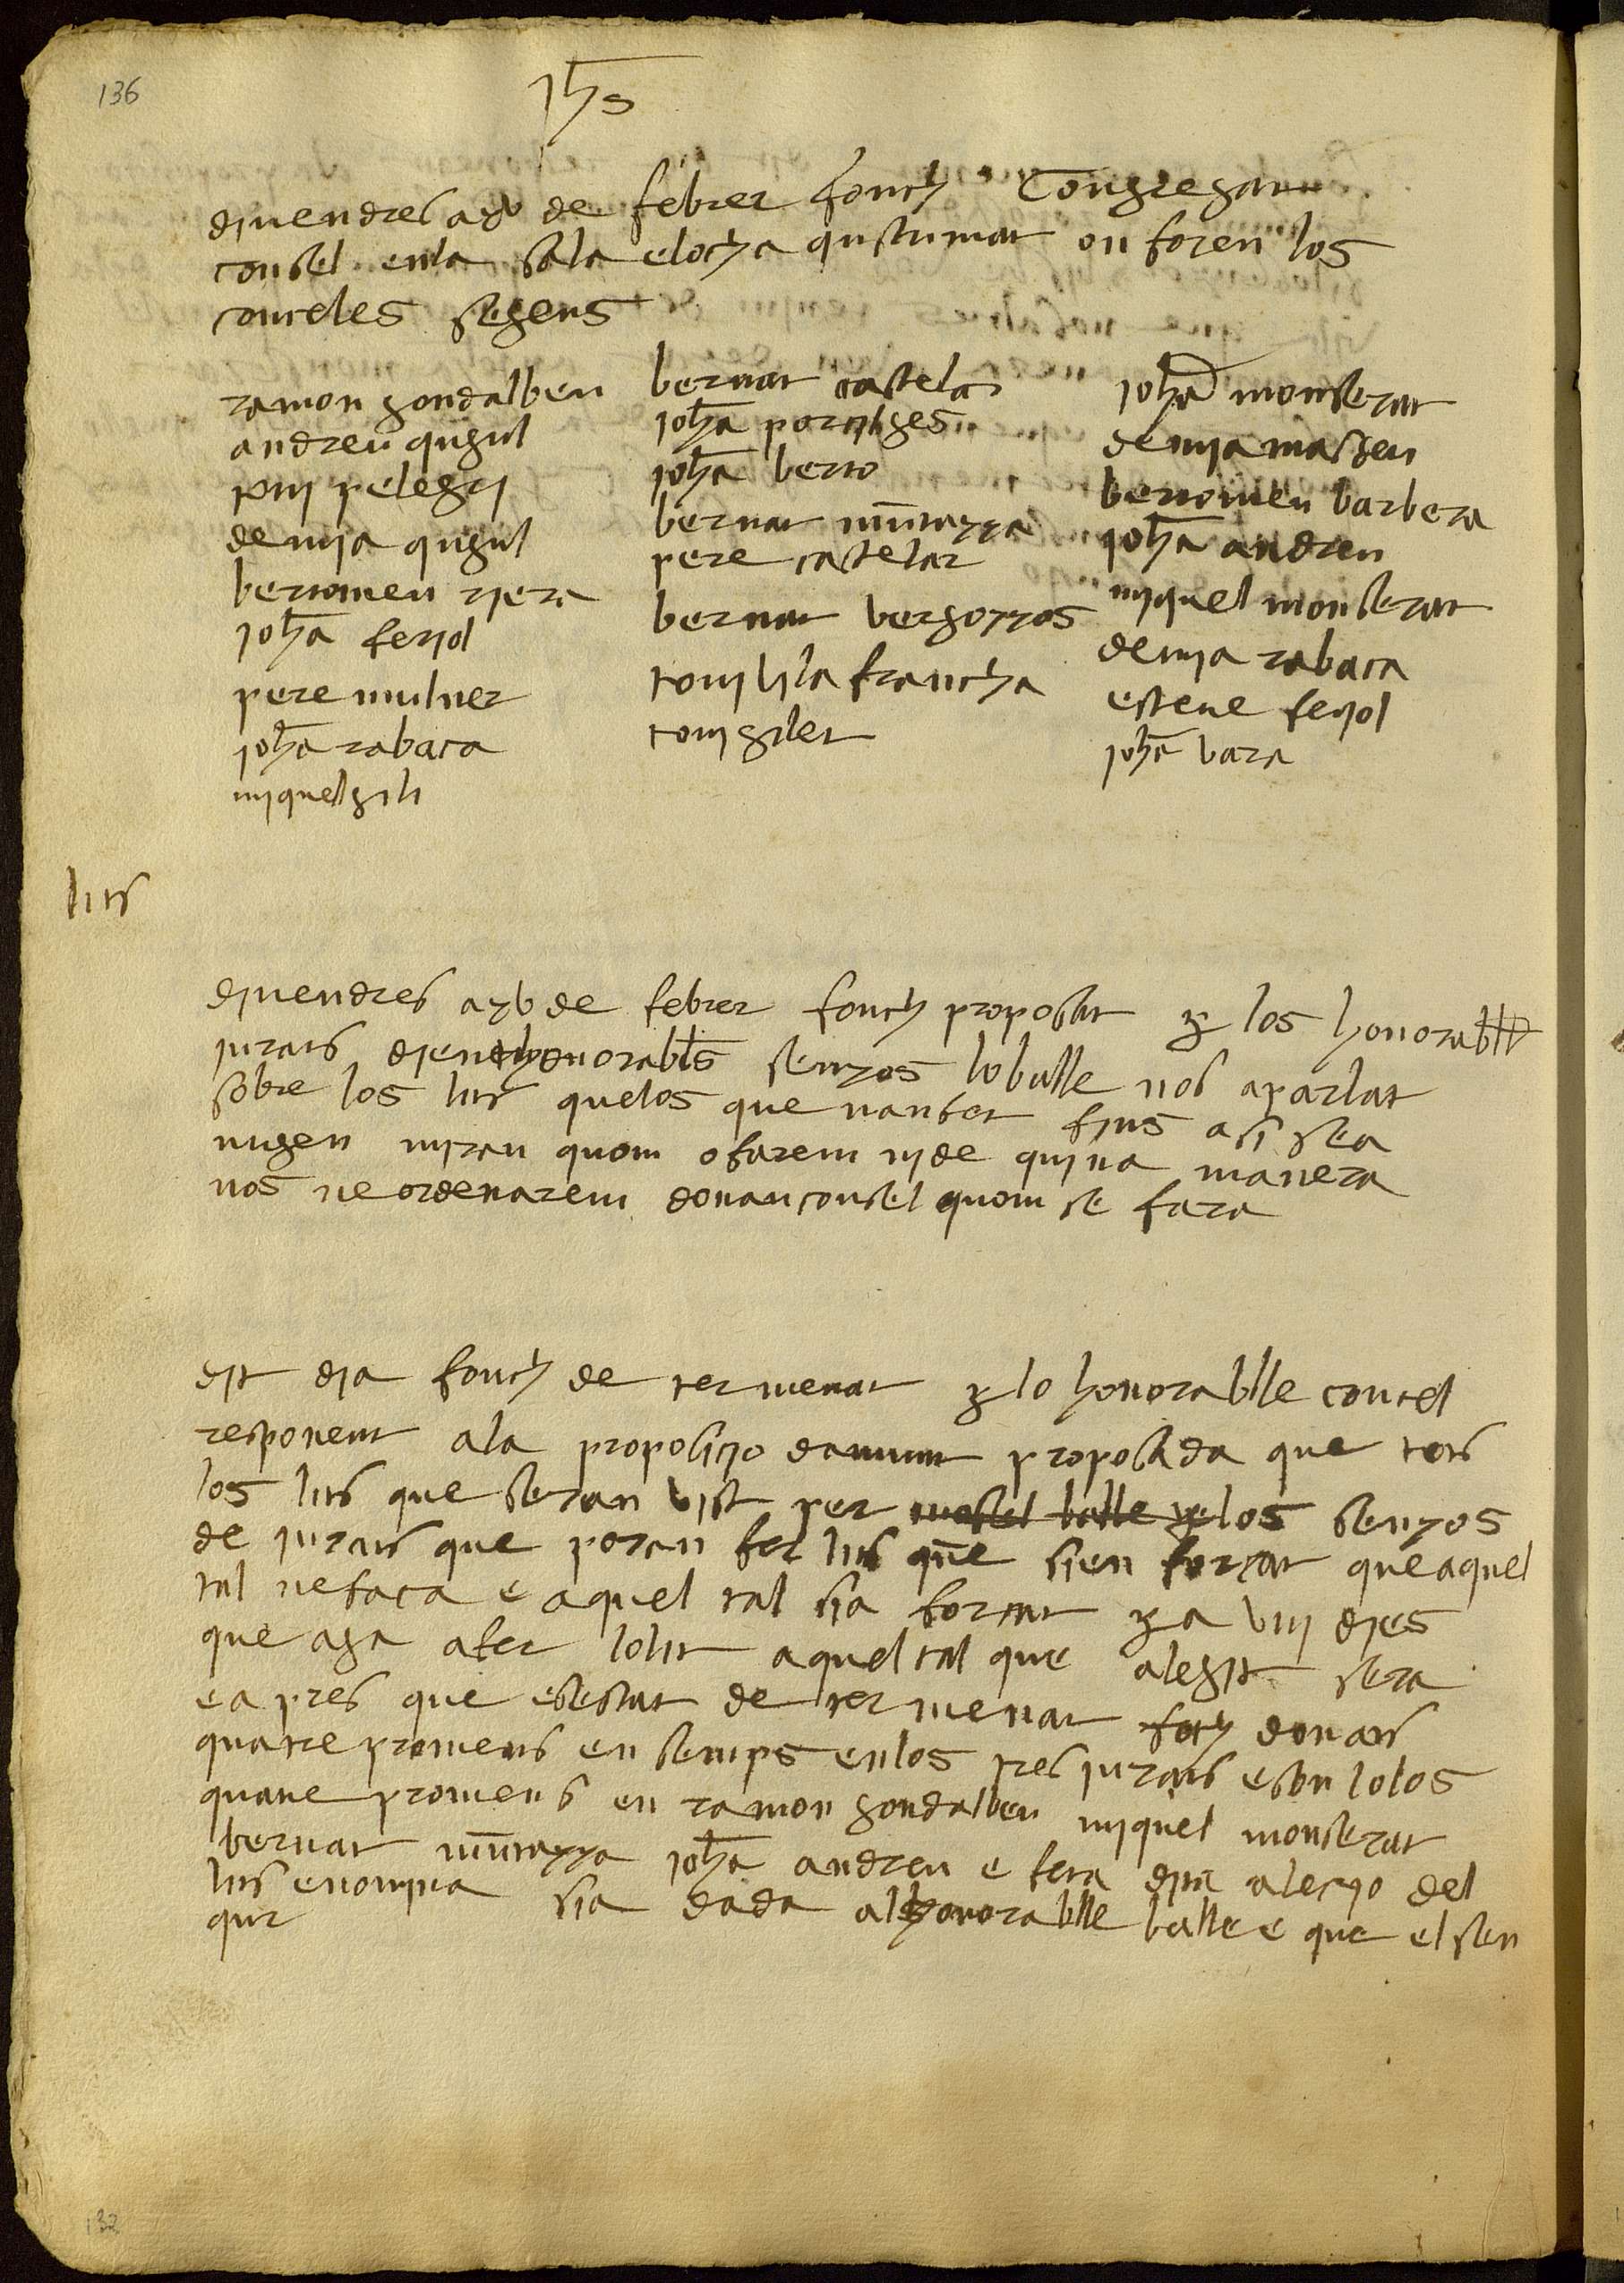 136
Jhs
divendres a xv de febrer fonch Congregat
consel en la sala e locha qustumat on foren los
conceles segens
ramon gondalbeu
andreu qugul
joni pelegri
demia qugul
bertomeu riera
joha feriol
pere mulner
joha rabaca
miquel gili
bernat castela
joha portuges
joha berto
bernat muntayya
pere castelar
bernat vergoyyos
toni vila francha
toni gilet
joha monserat
demia masseu
bertomeu barbera
joha andreu
miquel monserat
demia rabaca
esteve feriol
joha vara
lits
divendres a xv de febrer fonch proposat per los honorabls
jurats dient honorabls senyos lo balle nos a parlat
sobre los lits que los que n an fet fins asi se a
nugen mirau quom o farem ni de quina manera
nos ne ordenarem donau consel quom se fara
dit dia fonch de termenat per lo honorablle concel
responent a la proposicio damunt proposada que tots
los lits que seran vist per mosel balle pe los senyos
de jurats que poran fer lits que sien forcat que aquel
tal ne faca e aquel tal sia forcat per a viii dies
que aga a fer lo lit aquel tal que alegit sera
e a pres que es estat de termenat foch donats
quatre promens en semps en los tres jurats e son lo los
quatre promens en ramon gondalbeu miquel monserat
bernat muntayya joha andreu e feta dita alecio del
lits e nomina sia dada al honorablle balle e que el sen
qur
132